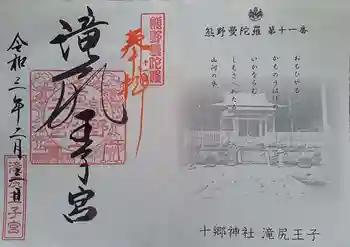 熊野曼陀羅
奉拝
滝尻王子宮
令和三年二月
熊野曼陀羅 第十一番
おもひやる
かものうはげの
いかならむ
しもさへわたる
山河の水
十郷神社 滝尻王子